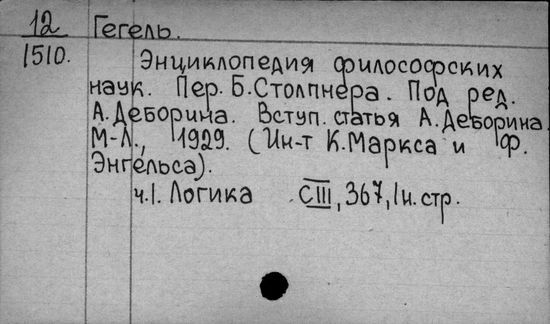 12 Гегель.
1510. Энциклопедия философских
наук. Пер. Б. Столпнера. Под ред.
А. Деборина. Вступ. статья А. Деборина
М-Л., 1929. (Ин-т К. Маркса и Ф.
Энгельса).
ч.I. Логика CIII, 367, 1 н. стр.